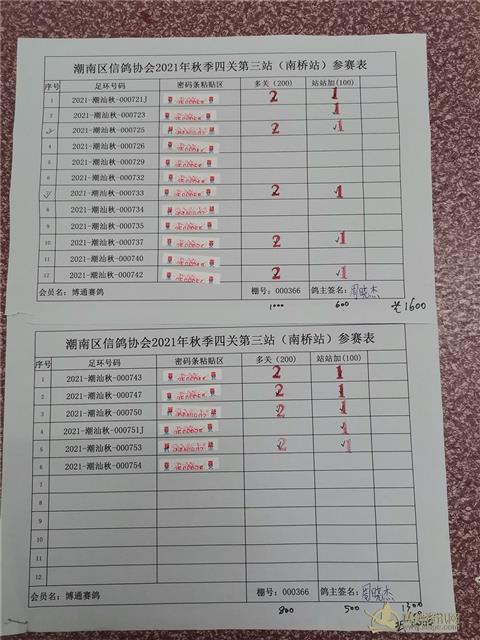 潮南区信鸽协会2021年秋季四关第三站（南桥站）参赛表
序号 足环号码 密码条粘贴区 多关（200） 站站加(100)
1 2021-潮汕秋-000721J 2 1
2 2021-潮汕秋-000723 1
3 2021-潮汕秋-000725 2 1
4 2021-潮汕秋-000726
5 2021-潮汕秋-000729
6 2021-潮汕秋-000732
2021-潮汕秋-000733 2 1
8 2021-潮汕秋-000734
9 2021-潮汕秋-000735
10 2021-潮汕秋-000737 2 1
11 2021-潮汕秋-000740
12 2021-潮汕秋-000742 2 1
会员名：博通赛鸽 棚号：000366 鸽主签名：周晓杰
1000 600 1600
潮南区信鸽协会2021年秋季四关第三站（南桥站）参赛表
序号 足环号码 密码条粘贴区 多关（200） 站站加(100)
1 2021-潮汕秋-000743 2 1
2 2021-潮汕秋-000747 2 1
3 2021-潮汕秋-000750 2 1
4 2021-潮汕秋-000751J 1
5 2021-潮汕秋-000753 2 1
6 2021-潮汕秋-000754
7
8
9
10
11
12
会员名：博通赛鸽 棚号：000366 鸽主签名：周晓杰
800 500 1300